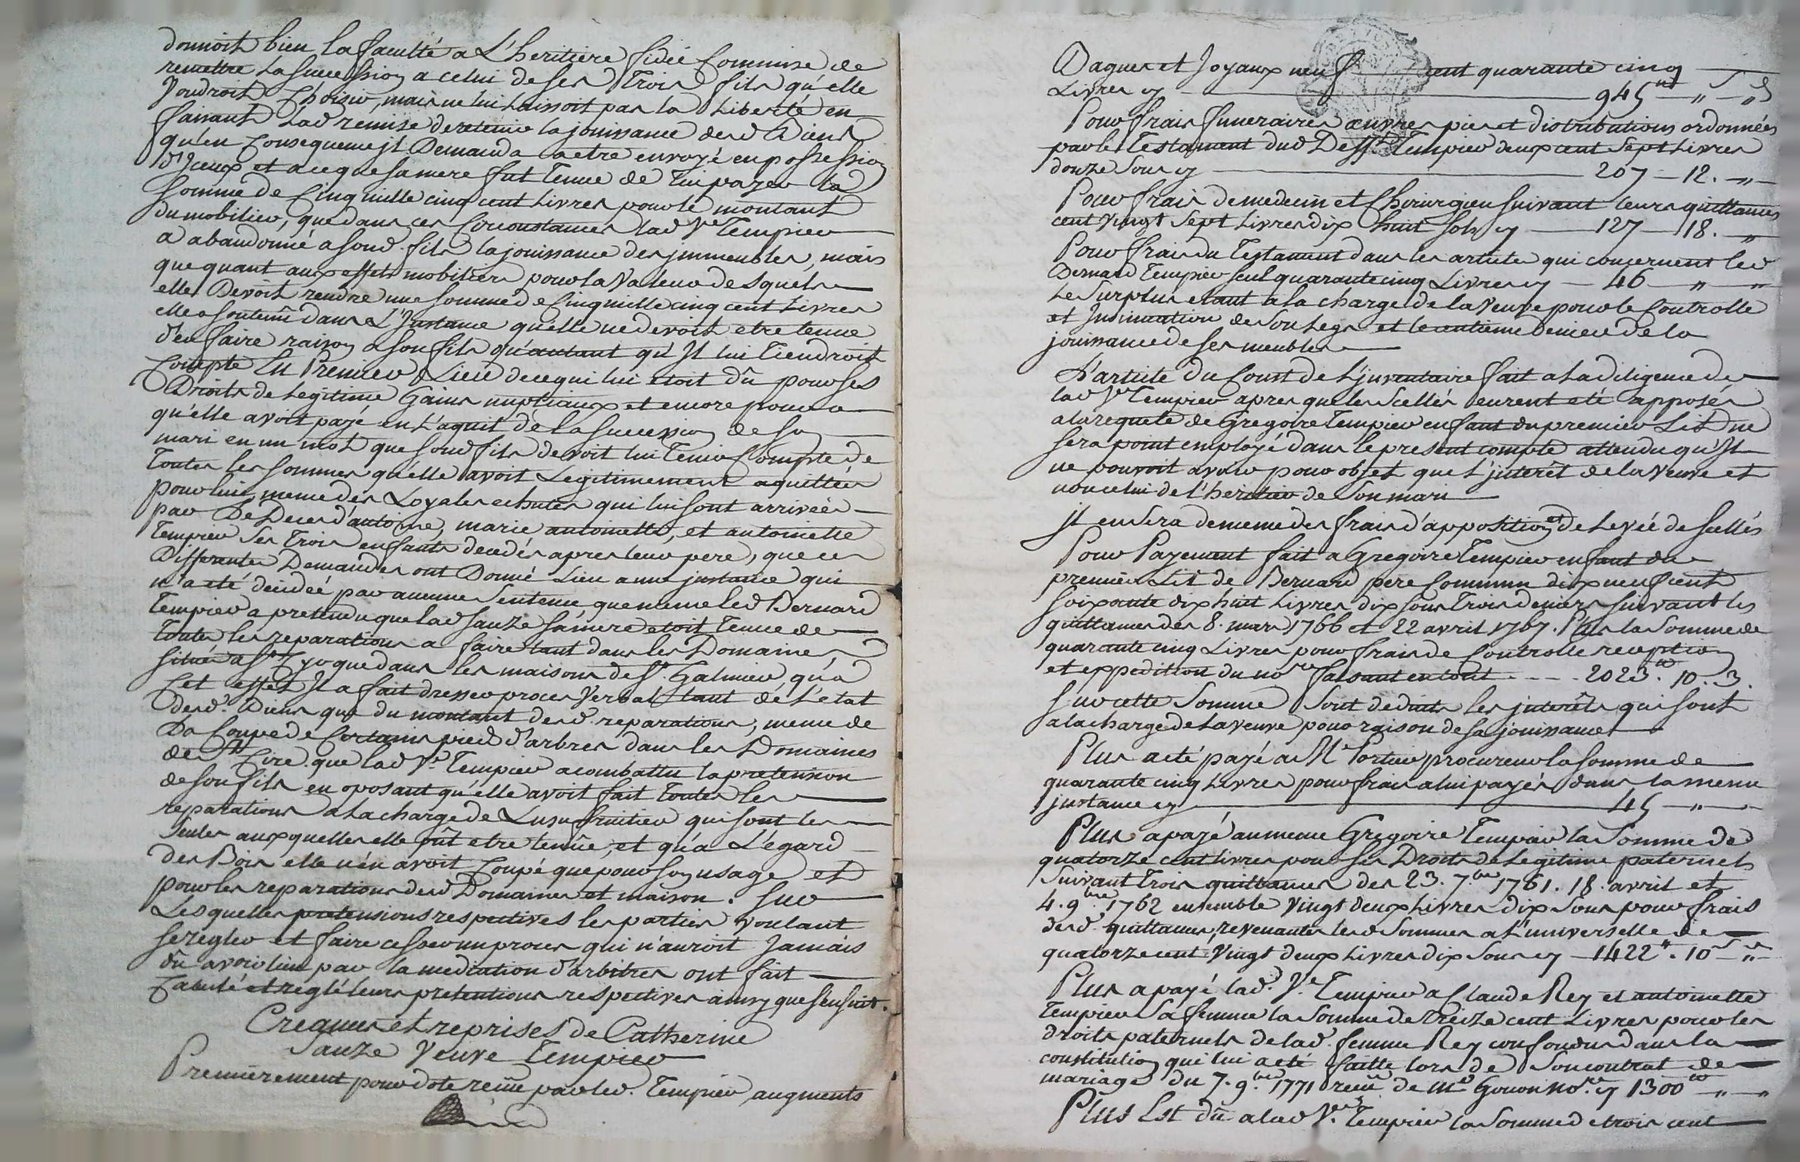 donnoit bien la faculté a L'heritiere fidei Commise de
remettre La succession a celui de ses Trois fils qu'elle
Voudroit Choisir, mais ne lui Laissoit pas la Liberté en
faisant Lad remise de retenir la jouissance desd Biens
qu'en Consequence jl Demanda a etre envoyé en possession
D'Jceux et a ce que sa mere fut Tenue de Lui payer la
somme de Cinq mille cinq cent Livres pour le montant
du mobilier, que dans ces Circonstances lad Ve Tempier
a abandonné a sond. fils la jouissance des jmmeubles, mais
que quant aux effets mobiliers pour la Valleur desquels
elle Devoit rendre une somme de Cinq mille cinq cent Livres
elle a soutenû dans L'Jnstance qu'elle ne devoit etre tenue
d'en faire raison a son fils qu'autant qu'Jl lui Tiendroit
Compte En Premier Lieu de ce qui lui etoit dû pour ses
Droits de Legitime Gains nuptiaux et encore pour ce
qu'elle avoit payé en L'aquit de la succession de so
mari en un mot que sond fils devoit lui Tenir Compte de
Toutes les sommes qu'elle avoit Legitimement aquittées
pour lui meme des Loyales echutes qui lui sont arrivées
par Le Deces d'autoine, marie antoinette, et antoinette
Tempier ses Trois enfants decedés apres leur pere, que ces
Differentes Demandes ont Donné Lieu a une jnstance qui
n'a eté decidée par aucune Sentence que meme led Bernard
Tempier a prétendu que lad Sauze sa mere etoit Tenue de
Toutes les reparations a faire tant dans les Domaines
situés a St Cyr que dans les maisons de St Galmier, qu'a
Cet effet Jl a fait dresser proces Verbal tant de L'etat
desd. Biens que du montant desd reparations, meme de
La Coupe de Certains pieds d'arbres dans les Domaines
de St Cire. que lad Ve Tempier a combattu la pretension
de son fils en oposant qu'elle avoit fait Toutes les
reparations a La charge de L'usufruitier qui sont les
Seules auxquelles elle pût etre tenûe, et qu'a L'égard
des Bois elle n'en avoit Coupé que pour son usage et
pour les reparations desd Domaines et maison. Sur
Lesquelles pretensions respectives les parties voulant
se regler et faire cesser un proces qui n'auroit Jamais
dû avoir lieu par la mediation d'arbitres ont fait
Calculé et reglé leurs pretentions respectives ainsy que s'en suit.
Creances et reprises de Catherine
Sauze Veuve Tempier
Premierement pour dote reçûe par led. Tempier, augments
Bagues et Joyaux neuf cent quarante cinq
Livres cy 945 tt " s " d
Pour frais funeraires œuvres pies et distributions ordonnées
par le Testament dud Defft Tempier deux cent sept Livres
douze Sous cy 207 12. "
Pour frais de medecin et Chirurgien suivant leurs quittances
cent Vingt Sept Livres dix huit sols cy 127 18. "
Pour frais du Testament dans les articles qui concernent led
Bernard Tempier seul quarante cinq Livres cy 46 " "
Le Surplus etant a la charge de la Veuve pour le Controlle
et Jnsinuation de son Legs et le centieme denier de la
jouissance de ses meubles
L'article du Cout de L'jnventaire fait a La diligence de
lad Ve Tempier apres que les scellés eurent eté apposés
a la requete de Gregoire Tempier enfant du premier Lit ne
sera point employé dans le present compte attendu qu'Jl
ne pouvoit avoir pour objet que l'jnteret de la Veuve et
non celui de l'heritier de Son mari
jl en sera de meme des frais d'apposition et de Levée de scellés
Pour Payement fait a Gregoire Tempier enfant du
premier Lit de Bernard pere Commun dix neuf cent
soixante dix huit Livres dix sous Trois deniers suivant les
quittances des 8. mars 1766 et 22 avril 1767. Plus la somme de
quarante cinq Livres pour frais de Controlle reception
et expedition du nore faisant en tout 2023 tt. 10. 3.
Sur cette Somme Sont deduits les jnterêts qui sont
a la charge de La veuve pour raison de sa jouissance
Plus a eté payé a Me Portier procureur la somme de
quarante cinq Livres pour frais a lui payés dans la meme
jnstance cy 45 " "
Plus a payé au meme Gregoire Tempier la Somme de
quatorze cent livres pour ses Droits de Legitime paternels
suivant Trois quittances des 23. 7.bre 1761. 18. avril et
4. 9.bre 1762 ensemble Vingt deux Livres dix Sous pour frais
desd. quittances, revenantes lesd Sommes a L'universelle de
quatorze cent Vingt deux Livres dix Sous cy 1422 tt. 10 s "
Plus a payé lad. Ve Tempier a Claude Rey et antoinette
Tempier Sa femme la Somme de Treize cent Livres pour les
droits paternels de lad. femme Rey confondus dans la
constitution qui lui a eté faitte lors de Son contrat de
mariage du 7. 9.bre 1771 reçû de Me Gonon Nore. cy 1300 tt " "
Plus Est dû a lad Ve. Tempier la Somme de trois cent